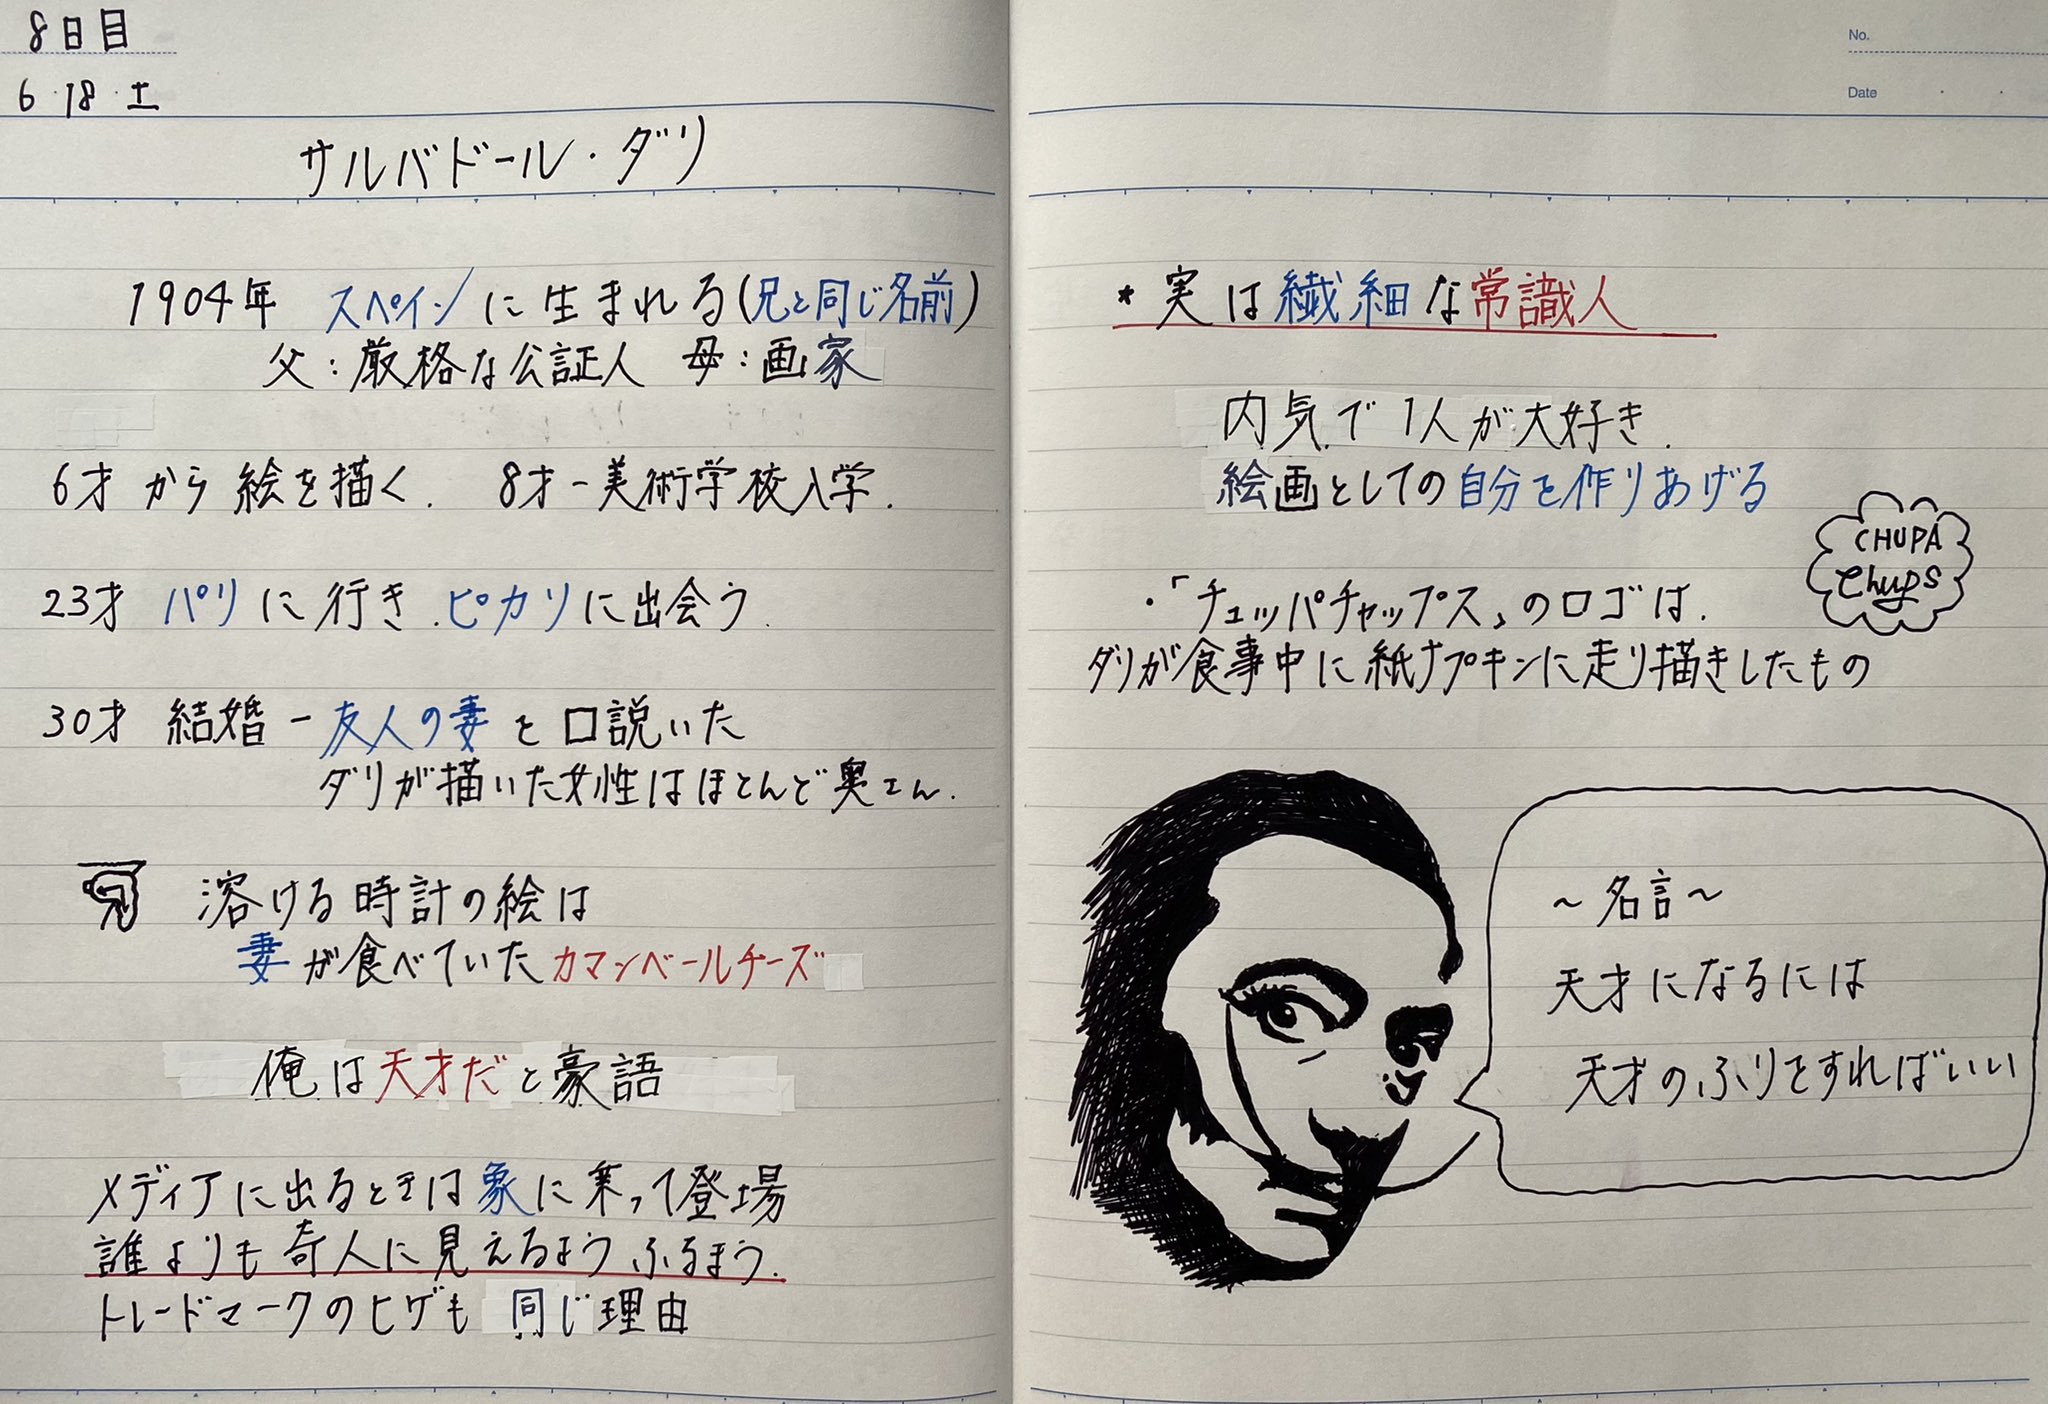 8日目
6・18・土
サルバドール・ダリ
1904年 スペインに生まれる(兄と同じ名前)
父:厳格な公証人 母:画家
6才から絵を描く. 8才-美術学校入学.
23才 パリに行き.ピカソに出会う.
30才 結婚-友人の妻を口説いた
ダリが描いた女性はほとんど奥さん.
溶ける時計の絵は
妻が食べていたカマンベールチーズ
俺は天才だと豪語
メディアに出るときは象に乗って登場
誰よりも奇人に見えるようふるまう.
トレードマークのヒゲも同じ理由
No.
Date
* 実は繊細な常識人
内気で1人が大好き.
絵画としての自分を作りあげる
CHUPA
Chups
・「チュッパチャップス」のロゴは.
ダリが食事中に紙ナプキンに走り描きしたもの
～名言～
天才になるには
天才のふりをすればいい